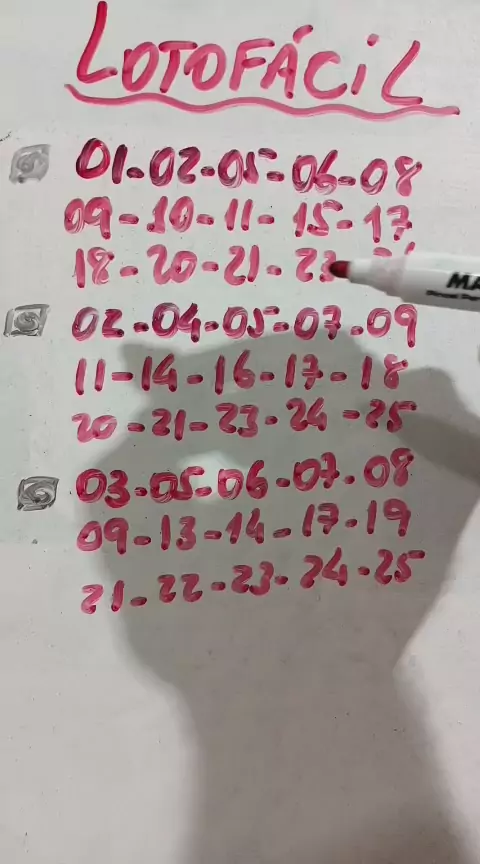 LOTOFÁCIL
01-02-05-06-08
09-10-11-15-17
18-20-21-23
02-04-05-07-09
11-14-16-17-18
20-21-23-24-25
03-05-06-07-08
09-13-14-17-19
21-22-23-24-25
MA